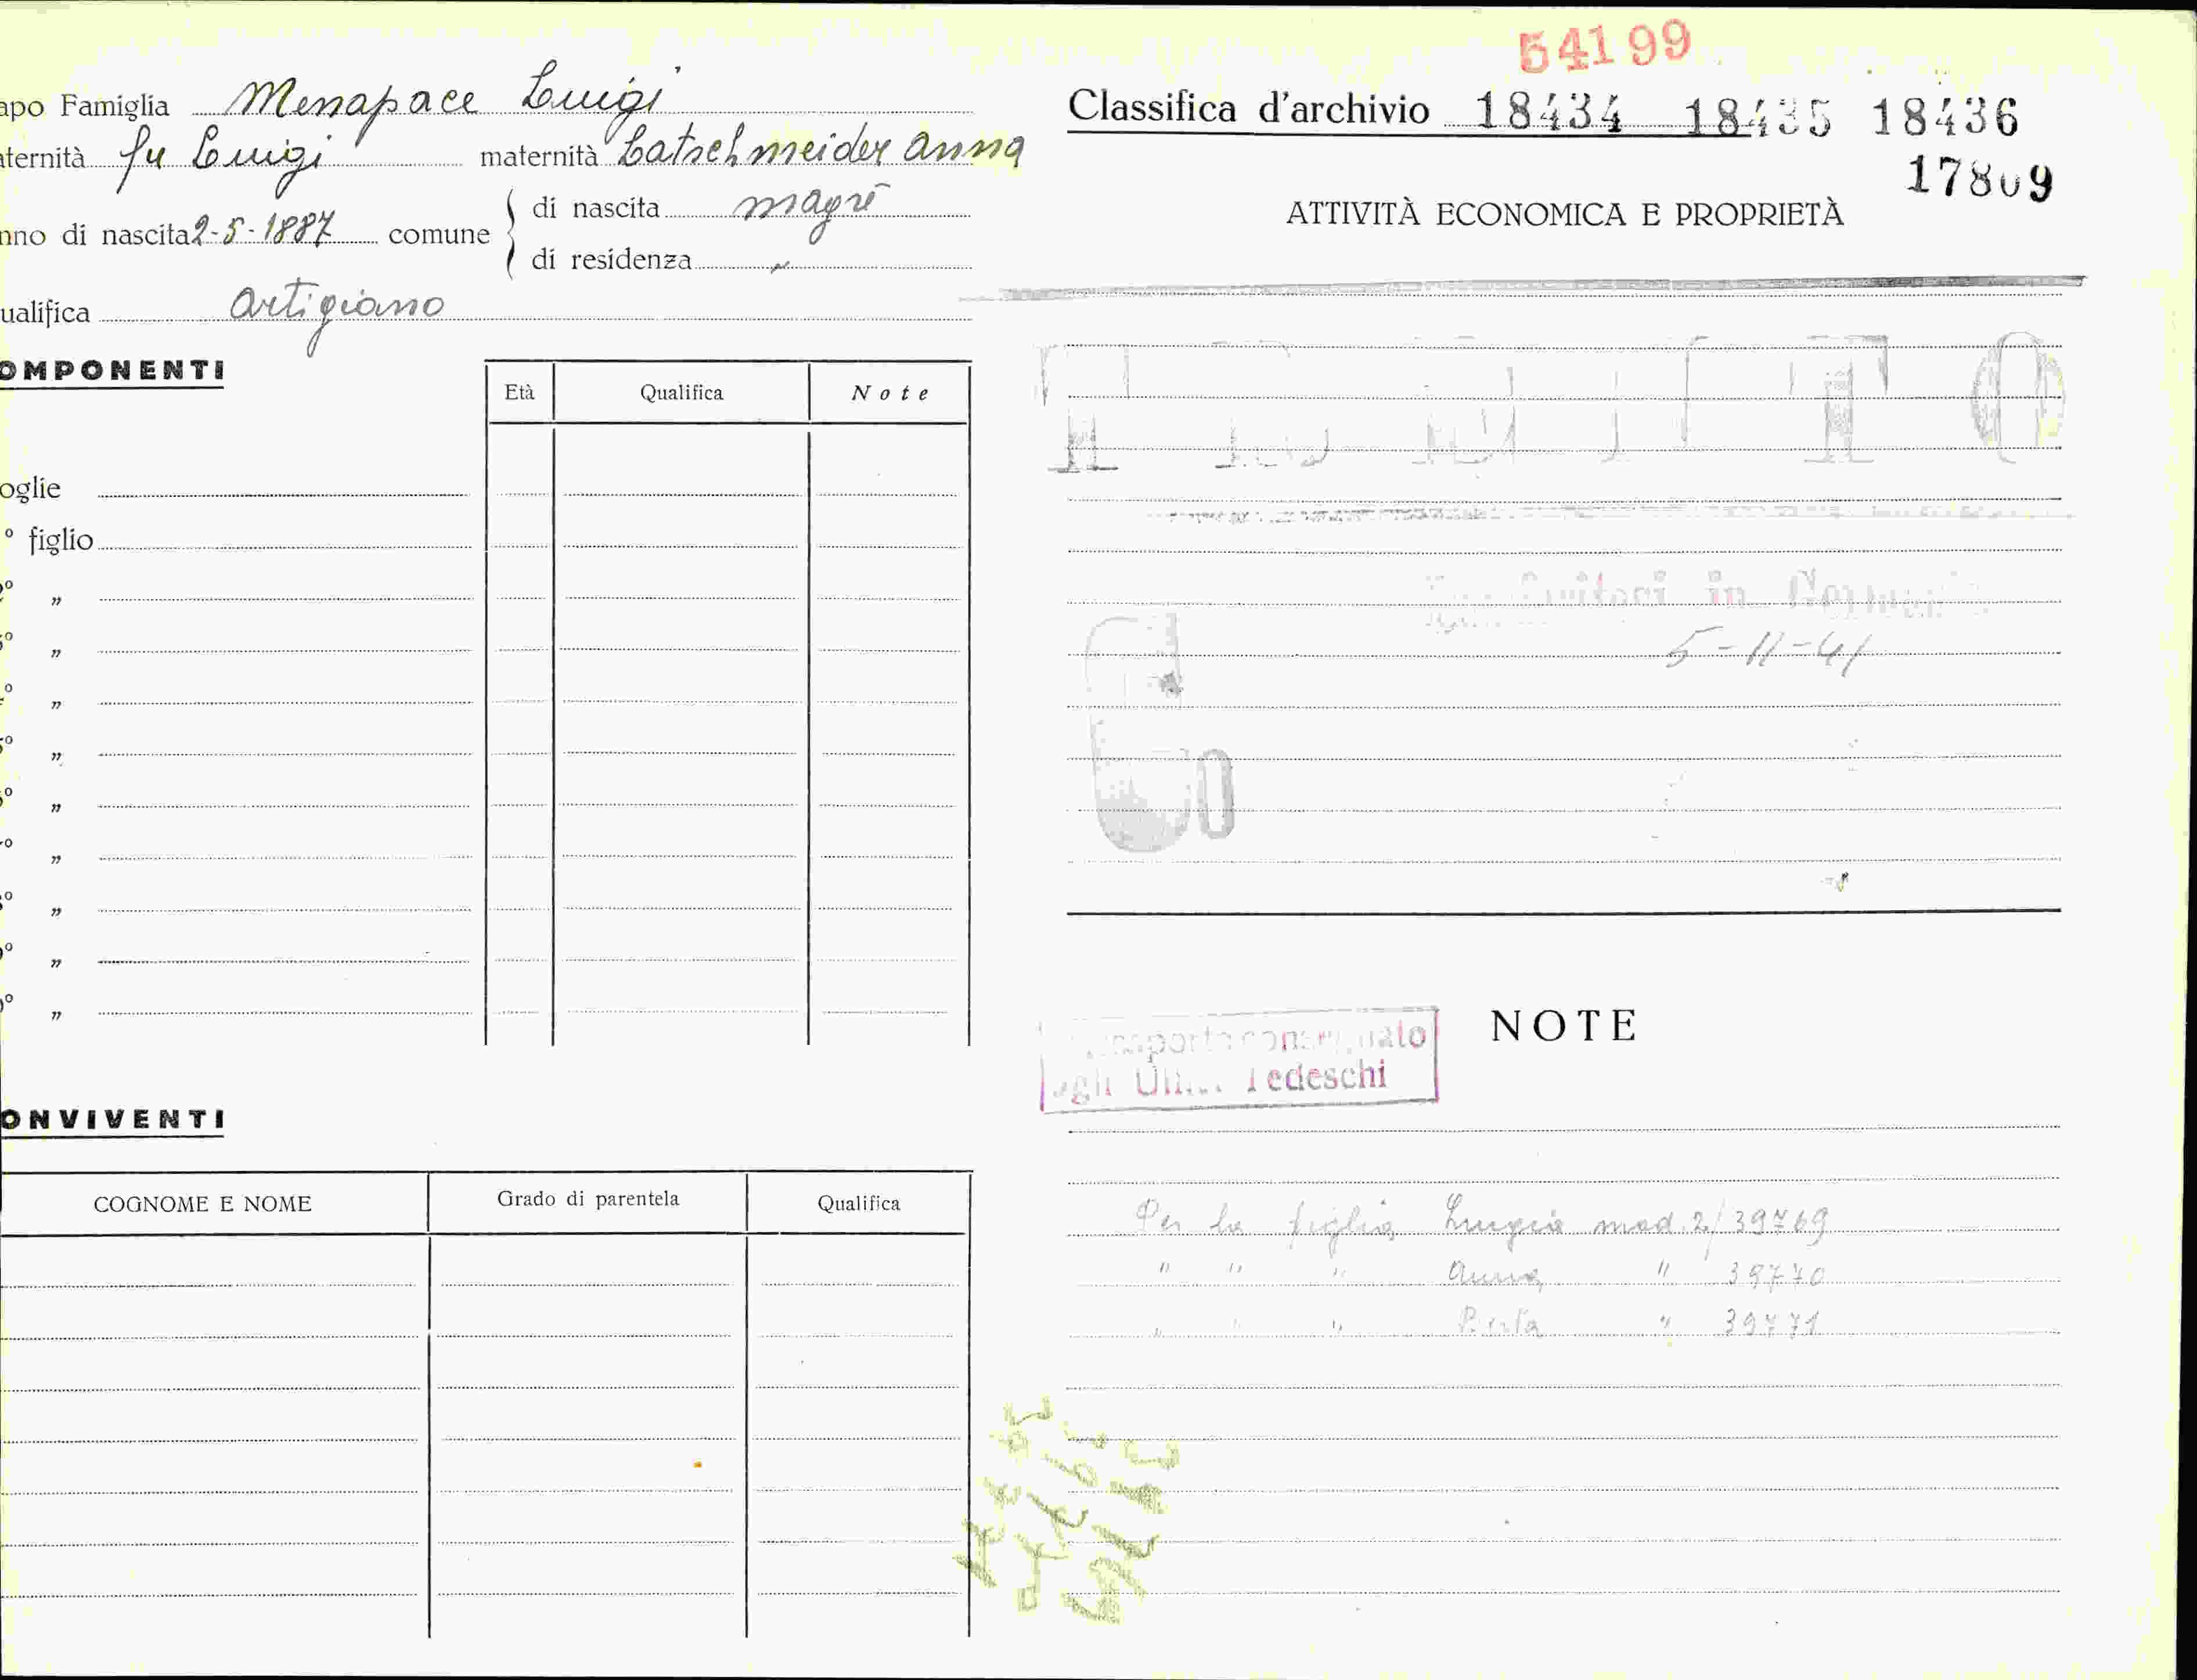 54199
apo Famiglia Menapace Luigi
aternità fu Luigi maternità Latschneider Anna
nno di nascita 2-5-1887 comune di nascita magrè
di residenza "
ualifica artigiano
OMPONENTI
Età Qualifica Note
oglie
° figlio
° "
° "
° "
° "
° "
° "
° "
° "
° "
ONVIVENTI
COGNOME E NOME Grado di parentela Qualifica
Classifica d'archivio 18434 18435 18436
17809
ATTIVITÀ ECONOMICA E PROPRIETÀ
in
5-11-41
NOTE
Tedeschi
Per la figlia Luigia mod. 2/39769
" " " Anna " 39770
" " " Berta " 39771